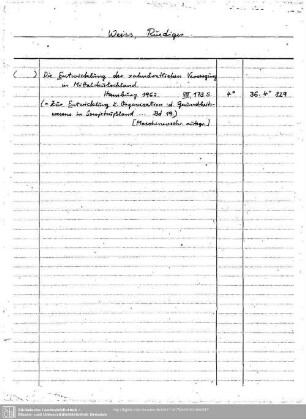 Weiss, Rüdiger
( ) Die Entwicklung der zahnärztlichen Versorgung
in Mitteldeutschland.
Hamburg 1962. 173 S. 4° 36. 4° 129
(= Zur Entwicklung u. Organisation d. Gesundheits-
wesens in Sowjetrußland ... Bd 19)
[Maschinenschr. autogr.]
Sächsische Landesbibliothek -
Staats- und Universitätsbibliothek Dresden